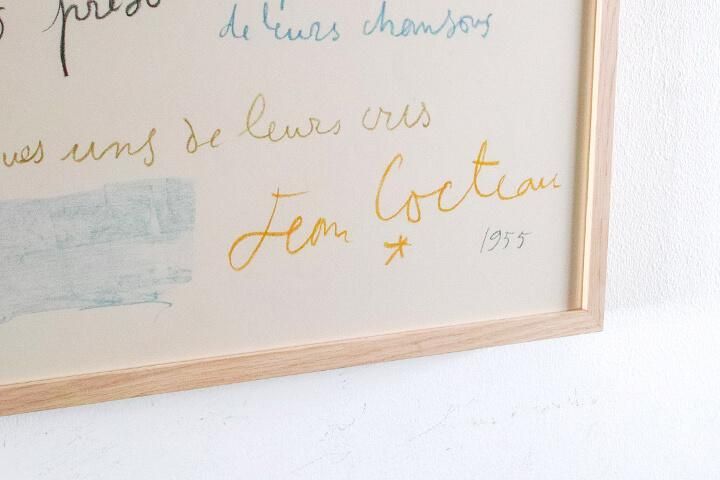 de leurs chansons
uns de leurs cris
Jean Cocteau
* 1955